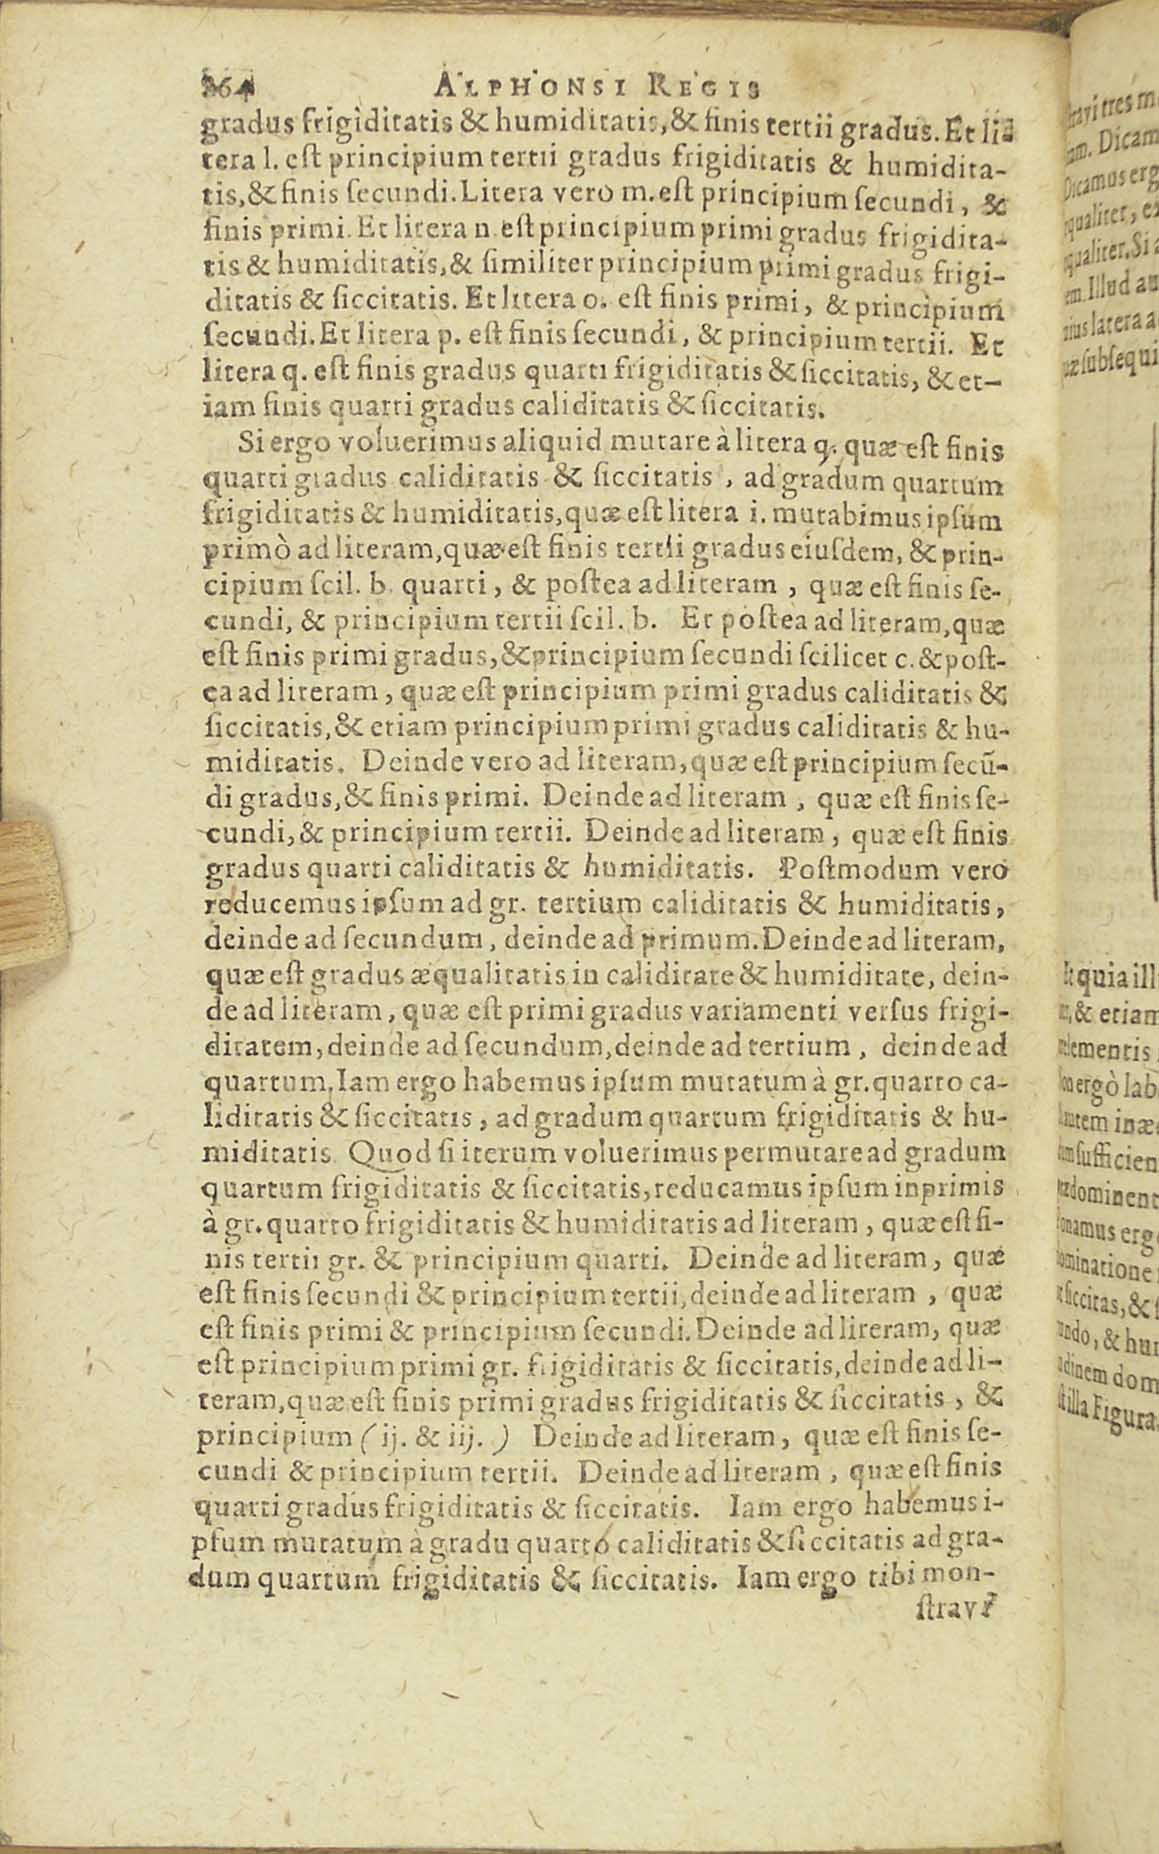 864 ALPHONSI REGIS
gradus frigiditatis & humiditatis, & finis tertii gradus. Et li-
tera l. est principium tertii gradus frigiditatis & humidita-
tis, & finis secundi. Litera vero m. est principium secundi, &
finis primi. Et litera n. est principium primi gradus frigidita-
tis & humiditatis, & similiter principium primi gradus frigi-
ditatis & siccitatis. Et litera o. est finis primi, & principium
secundi. Et litera p. est finis secundi, & principium tertii. Et
litera q. est finis gradus quarti frigiditatis & siccitatis, & et-
iam finis quarti gradus caliditatis & siccitatis.
Si ergo voluerimus aliquid mutare à litera q. quæ est finis
quarti gradus caliditatis & siccitatis, ad gradum quartum
frigiditatis & humiditatis, quæ est litera i. mutabimus ipsum
primò ad literam, quæ est finis tertii gradus eiusdem, & prin-
cipium scil. b. quarti, & postea ad literam, quæ est finis se-
cundi, & principium tertii scil. b. Et postea ad literam, quæ
est finis primi gradus, & principium secundi scilicet c. & post-
ea ad literam, quæ est principium primi gradus caliditatis &
siccitatis, & etiam principium primi gradus caliditatis & hu-
miditatis. Deinde vero ad literam, quæ est principium secū-
di gradus, & finis primi. Deinde ad literam, quæ est finis se-
cundi, & principium tertii. Deinde ad literam, quæ est finis
gradus quarti caliditatis & humiditatis. Postmodum vero
reducemus ipsum ad gr. tertium caliditatis & humiditatis,
deinde ad secundum, deinde ad primum. Deinde ad literam,
quæ est gradus æqualitatis in caliditate & humiditate, dein-
de ad literam, quæ est primi gradus variamenti versus frigi-
ditatem, deinde ad secundum, deinde ad tertium, deinde ad
quartum. Iam ergo habemus ipsum mutatum à gr. quarto ca-
liditatis & siccitatis, ad gradum quartum frigiditatis & hu-
miditatis. Quod si iterum voluerimus permutare ad gradum
quartum frigiditatis & siccitatis, reducamus ipsum inprimis
à gr. quarto frigiditatis & humiditatis ad literam, quæ est fi-
nis tertii gr. & principium quarti. Deinde ad literam, quæ
est finis secundi & principium tertii, deinde ad literam, quæ
est finis primi & principium secundi. Deinde ad lireram, quæ
est principium primi gr. frigiditatis & siccitatis, deinde ad li-
teram, quæ est finis primi gradus frigiditatis & siccitatis, &
principium (ij. & iij.) Deinde ad literam, quæ est finis se-
cundi & principium tertii. Deinde ad literam, quæ est finis
quarti gradus frigiditatis & siccitatis. Iam ergo habemus i-
psum mutatum à gradu quarto caliditatis & siccitatis ad gra-
dum quartum frigiditatis & siccitatis. Iam ergo tibi mon-
stravi
Dicam
Dicamus erg
qualiter,
qualiter. Si
Illud au
latera a
subsequi
quia ill
& etiam
elementis
ergò lab
autem inæ
sufficien
dominent
ergo
ominatione
siccitas, &
& hu
dinem dom
illa Figura